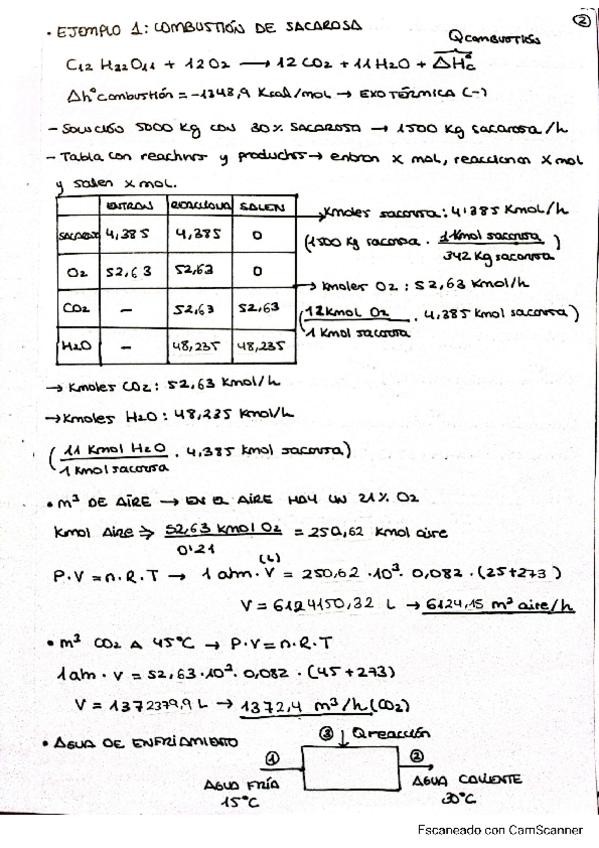 ②
· EJEMPLO 1: COMBUSTIÓN DE SACAROSA
Qcombustión
C12 H22O11 + 12O2 ⟶ 12CO2 + 11H2O + ΔH°c
Δh°combustión = -1348,9 Kcal/mol → EXOTÉRMICA (-)
- Solución 5000 kg con 30% SACAROSA → 1500 Kg sacarosa/h
- Tabla con reactivos y productos → entran x mol, reaccionan x mol
y salen x mol.
ENTRAN REACCIONA SALEN
SACAROSA 4,385 4,385 0
O2 52,63 52,63 0
CO2 - 52,63 52,63
H2O - 48,235 48,235
→ Kmoles sacarosa: 4'385 Kmol/h
(1500 Kg sacarosa · 1 Kmol sacarosa / 342 Kg sacarosa)
→ Kmoles O2: 52,63 Kmol/h
(12 Kmol O2 / 1 Kmol sacarosa · 4,385 Kmol sacarosa)
→ Kmoles CO2: 52,63 Kmol/h
→ Kmoles H2O: 48,235 Kmol/h
(11 Kmol H2O / 1 Kmol sacarosa · 4,385 Kmol sacarosa)
· m³ DE AIRE → EN EL AIRE HAY UN 21% O2
Kmol Aire ⇒ 52,63 Kmol O2 / 0'21 = 250,62 Kmol aire
P·V = n·R·T → 1 atm · V (L) = 250,62 · 10³ · 0,082 · (25+273)
V = 6124150,32 L → 6124,15 m³ aire/h
· m³ CO2 A 45°C → P·V = n·R·T
1 am · V = 52,63 · 10³ · 0,082 · (45+273)
V = 1372379,9 L → 1372,4 m³/h (CO2)
· AGUA DE ENFRIAMIENTO
③ ↓ Qreacción
①
②
AGUA FRÍA
15°C
AGUA CALIENTE
30°C
Escaneado con CamScanner